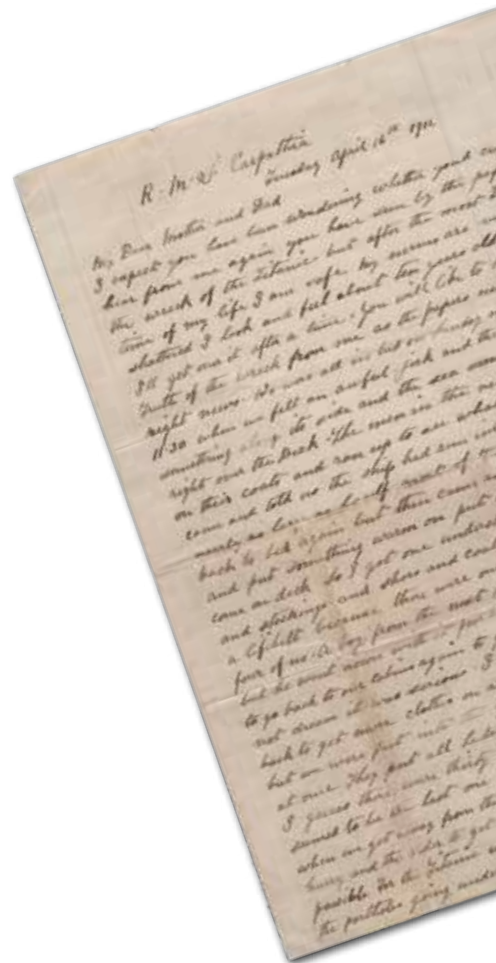 R. M. S. Carpathia
Tuesday April 16th 1912
My Dear Mother and Dad
I expect you have been wondering whether you'd
hear from me again you have seen by the
the wreck of the Titanic but after the most
time of my life I am safe. My nerves are
shattered I look and feel about ten years
I'll get over it after a time. You will like to
truth of the wreck from me as the papers
right news. We was all in bed on Sunday
11-30 when we felt an awful jerk and the
something along its side and the sea
right over the Deck. The men in the
on their coats and ran up to see
came and told us the ship had run
nearly as large as
back to bed again but then came
and put something warm on put
come on deck. So I got one
and stockings and shoes and
a lifebelt because there were
four of us. A boy from the next
but he went
to go back to our cabins again to
not dream it was serious. I
back to get more clothes on
but on were put into the
at once. They put all
I guess there were thirty
seemed to be the last one
when we got away from the
hurry and the
possible for the Titanic
the portholes going under